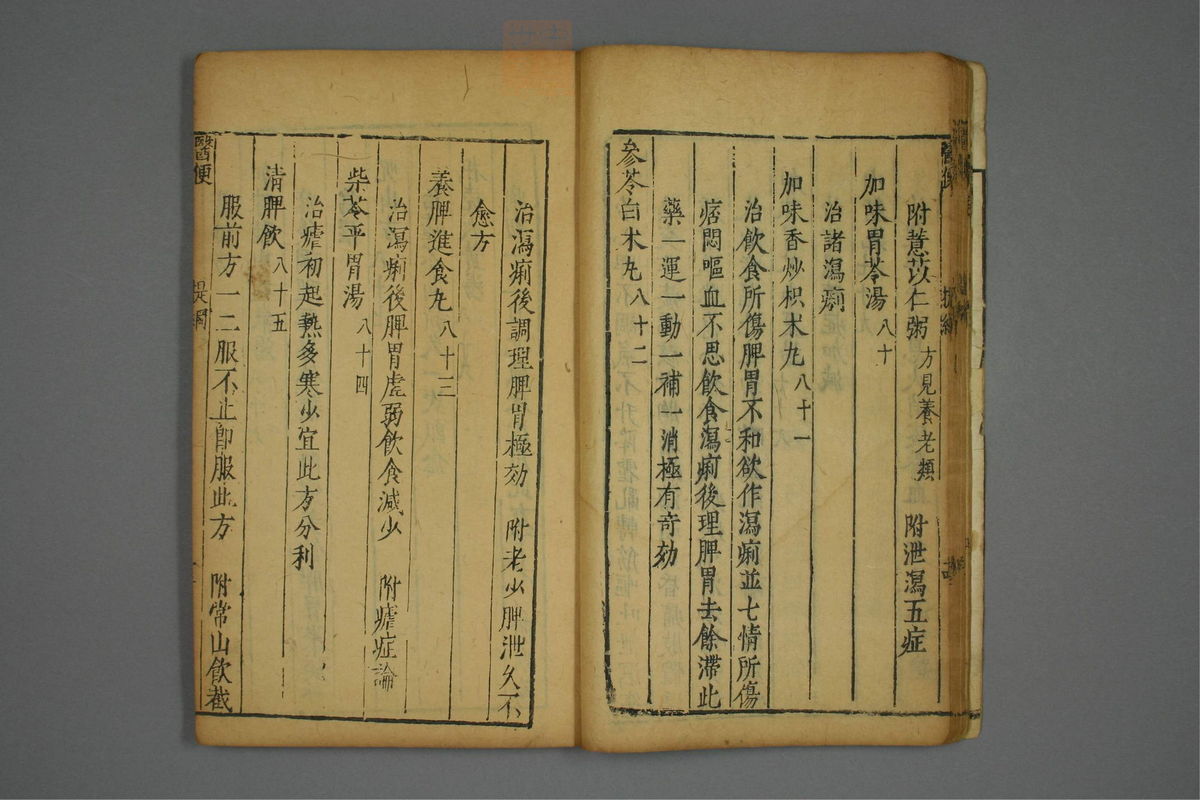 附薏苡仁粥 方見養老類 附泄瀉五症
加味胃苓湯 八十
治諸瀉痢
加味香炒枳朮丸 八十一
治飲食所傷脾胃不和欲作瀉痢並七情所傷
痞悶嘔血不思飲食瀉痢後理脾胃去餘滯此
藥一運一動一補一消極有奇効
參苓白朮丸 八十二
治瀉痢後調理脾胃極効 附老少脾泄久不
愈方
養脾進食丸 八十三
治瀉痢後脾胃虛弱飲食減少 附瘧症論
柴苓平胃湯 八十四
治瘧初起熱多寒少宜此方分利
清脾飲 八十五
服前方一二服不止即服此方 附常山飲截
醫便 提綱